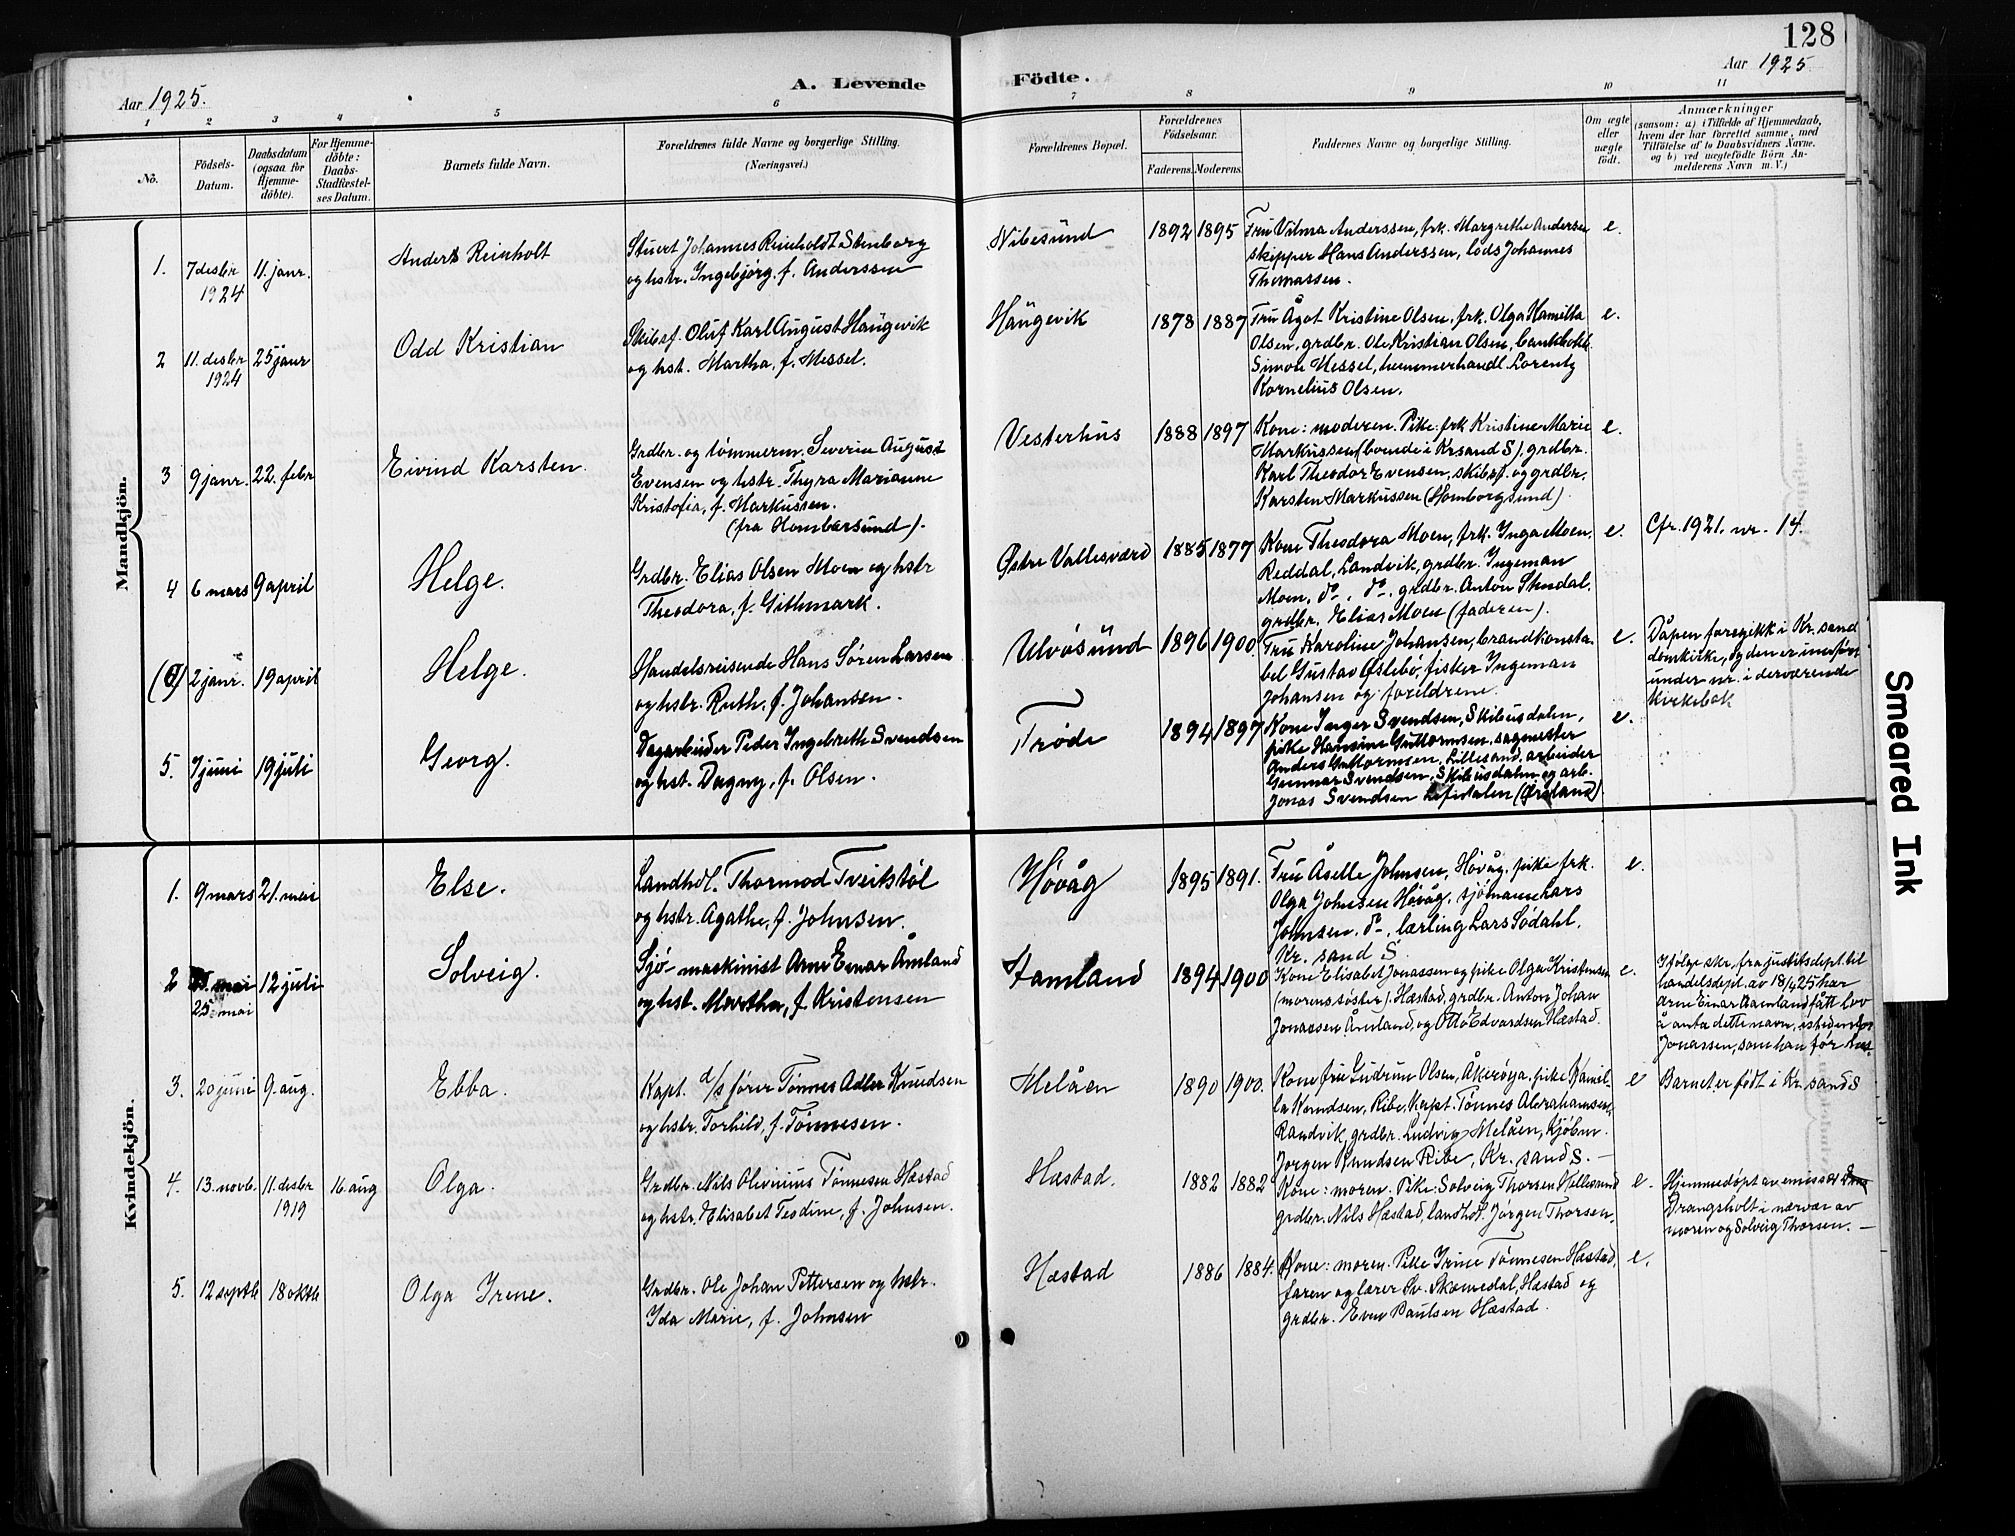 128
Aar 1925.
A. Levende
Födte.
Aar 1925
1 2 3 4 5 6 7 8 9 10 11
No.
Födsels-
Datum.
Daabsdatum
(ogsaa for
Hjemme-
döbte).
For Hjemme-
döbte:
Daabs-
Stadfæstel-
ses Datum.
Barnets fulde Navn.
Forældrenes fulde Navne og borgerlige Stilling.
(Næringsvei.)
Forældrenes Bopæl.
Forældrenes
Födselsaar.
Faderens. Moderens.
Faddernes Navne og borgerlige Stilling.
Om ægte
eller
uægte
födt.
Anmærkninger
(saasom: a) i Tilfælde af Hjemmedaab,
hvem der har forrettet samme, med
Tilföielse af to Daabsvidners Navne,
og b) ved uægtefödte Börn An-
melderens Navn m. V.)
Mandkjön.
1. 7 desbr 11. janr.
1924
Anders Reinholt
Stuert Johannes Reinholdt Stenborg
og hstr. Ingebjørg, f. Anderssen
Nibesund
1892 1895
Fru Vilma Anderssen, frk. Margrethe Andersen
skipper Hans Anderssen, lods Johannes
Thomassen.
e.
2 11. desbr 25 janr
1924
Odd Kristian
Skibsf. Oluf Karl August Haugevik
og hst. Martha, f. Messel.
Haugevik
1878 1887
Fru Ågot Kristine Olsen, frk. Olga Kamilla
Olsen, grdbr. Ole Kristian Olsen, bankbokh.
Simon Messel, hummerhandl. Lorentz
Kornelius Olsen.
e.
3 9 janr. 22. febr
Eivind Karsten.
Grdbr. og tømmerm. Severin August
Evensen og hstr. Thyra Marianne
Kristofia, f. Markussen.
(fra Hombersund).
Vesterhus
1888 1897
Kone: moderen. Pike: frk Kristine Marie
Markussen (boende i Krsand S), grdbr.
Karl Theodor Evensen, skibsf. og grdbr.
Karsten Markussen (Homborgsund).
e.
4 6 mars 9 april
Helge.
Grdbr. Elias Olsen Moen og hstr
Theodora, f. Githmark.
Østre Vallesværd
1885 1877
Kone Theodora Moen, frk. Inga Moen,
Reddal, Landvik, grdbr. Ingeman
Moen, do, do, grdbr. Anton Stendal,
grdbr. Elias Moen (faderen).
e.
Cfr. 1921. nr. 14.
2 janr. 19 april
Helge.
Handelsreisende Hans Søren Larsen
og hstr. Ruth, f. Johansen.
Ulvøsund
1896 1900.
Fru Karoline Johansen, brandkonsta-
bel Gustav Øslebø, fisker Ingeman
Johansen og foreldrene.
e.
Dåpen foregikk i Kr. sand
domkirke, og den er innført
under nr. i derværende
kirkebok
5. 7 juni 19 juli
Georg.
Dagarbeider Peder Ingebreth Svendsen
og hst. Dagny, f. Olsen.
Trøde
1894 1897
Kone Inger Svendsen, Skibusdalen,
pike Hansine Guttormsen, sagmester
Anders Guttormsen, Lillesand, arbeider
Gunnar Svendsen, Skibusdalen og arb.
Jonas Svendsen
e.
Kvindekjön.
1. 9 mars 21. mai
Else.
Landhdl. Thormod Tveitstøl
og hstr. Agathe, f. Johnsen.
Høvåg
1895 1891.
Fru Åselle Johnsen, Høvåg, pike frk.
Olga Johnsen Høvåg, sjømann Lars
Johnsen, do, lærling Lars Sødahl,
Kr. sand S
e.
2 mai 12 juli
25. mai
Solveig.
Sjø-maskinist Arne Einar Åmland
og hst. Martha, f. Kristensen
Stamland
1894 1900
Kone Elisabet Jonassen og pike Olga Kristensen
(morens søster). Hæstad, grdbr. Anton Johan
Jonassen Åmland, og Otto Edvardsen Hæstad.
e.
Ifølge skr. fra justitsdept. til
handelsdept. av 18/4 25 har
Arne Einar Aamland fått lov
å anta dette navn, istedenfor
Jonassen, som han før
3. 20 juni 9. aug.
Ebba.
Kapt. d/s fører Tønnes Adler Knudsen
og hstr. Torhild, f. Tønnesen.
Melåen
1890 1900.
Kone fru Gudrun Olsen, Åkerøya, pike Kamil-
la Knudsen, Ribe, Kapt. Tønnes Abrahamsen,
Randvik, grdbr. Ludvig Melåen, kjøbm.
Jørgen Knudsen Ribe, Kr. sand S. —
e
Barnet er født i Kr. sand S
4. 13. novb. 11. desbr 16. aug
1919
Olga.
Grdbr. Nils Olivinius Tønnesen Hæstad
og hstr. Elisabet Teodine, f. Johnsen.
Hæstad.
1882 1882
Kone: moren. Pike: Solveig Thorsen
grdbr. Nils Hæstad, landhdl. Jørgen Thorsen.
e.
Hjemmedøpt av emissær
Drangsholt i nærvær av
moren og Solveig Thorsen. —
5. 12 septb 18 oktb
Olga Irene.
Grdbr. Ole Johan Pettersen og hstr.
Ida Marie, f. Johnsen
Hæstad
1886 1884.
Kone: moren. Pike Irene Tønnesen Hæstad,
faren og lærer Sv. Skomedal, Hæstad og
grdbr. Even Paulsen Hæstad.
e.
Smeared Ink